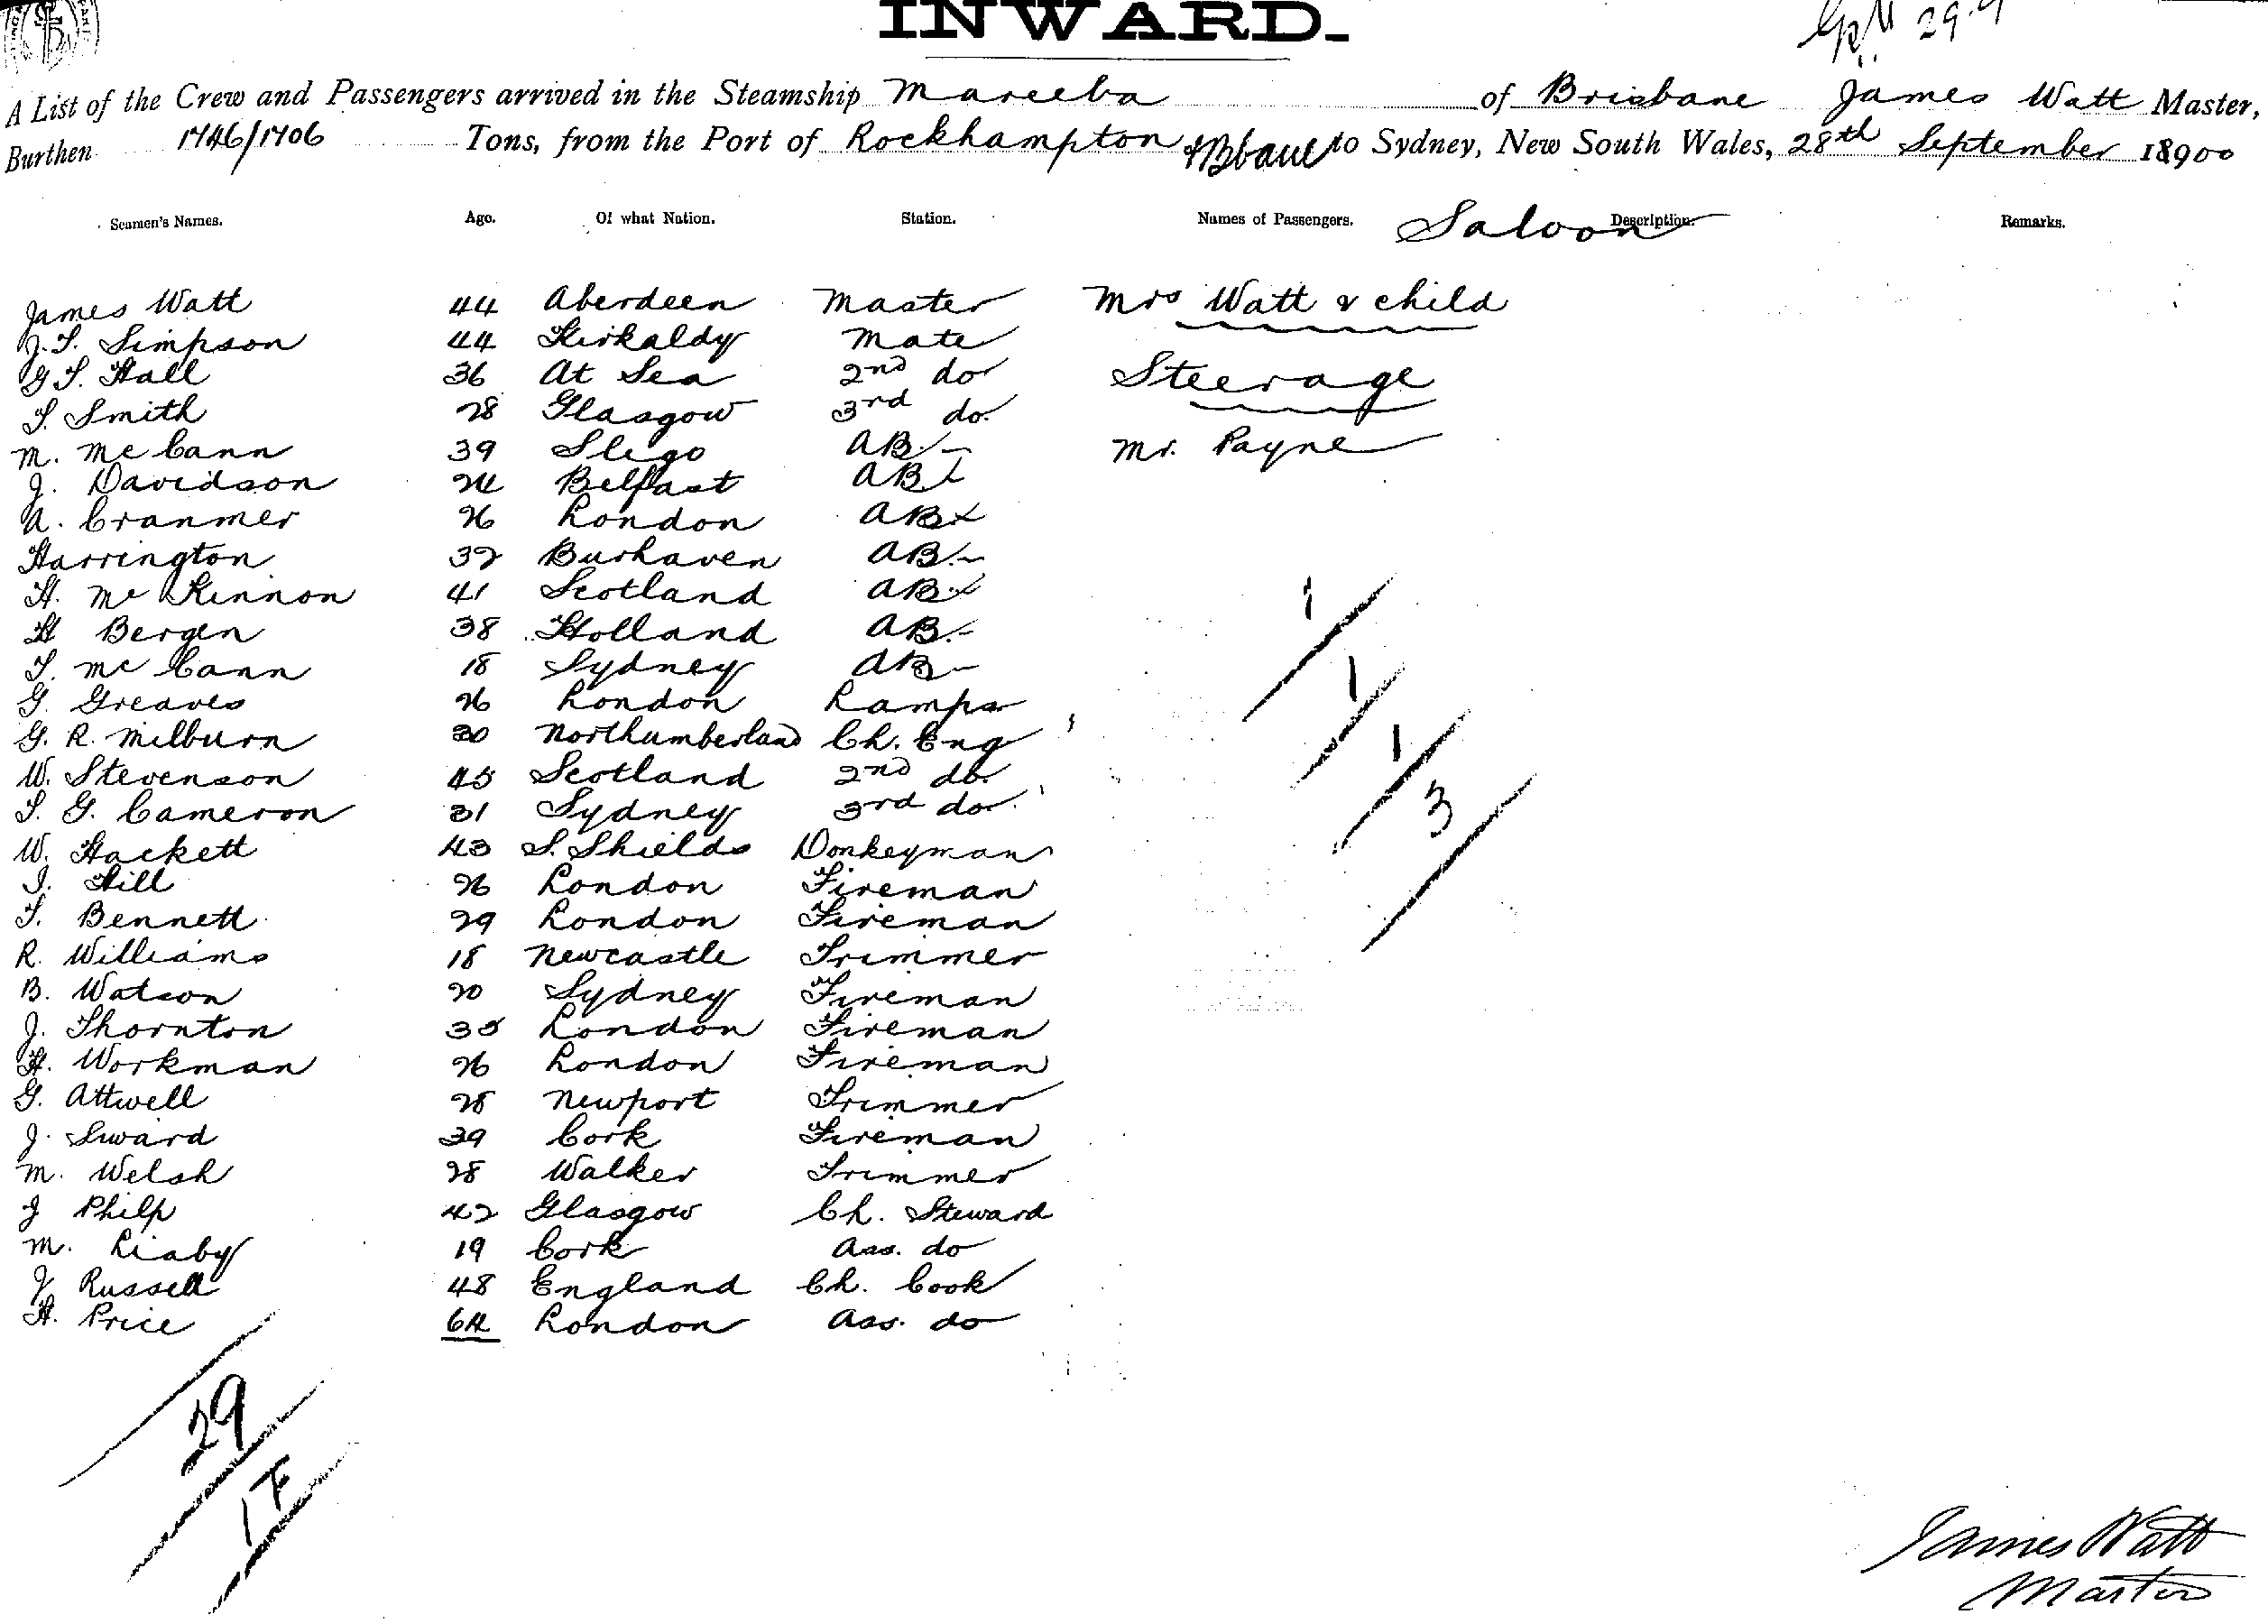 INWARD.
29.9
A List of the Crew and Passengers arrived in the Steamship Mareeba of Brisbane James Watt Master,
Burthen 1746/1706 Tons, from the Port of Rockhampton & Bbane to Sydney, New South Wales, 28th September 18900
Seamen's Names. Age. Of what Nation. Station. Names of Passengers. Saloon Description. Remarks.
James Watt 44 Aberdeen Master Mrs Watt & child
J. T. Simpson 44 Kirkaldy Mate
G T. Hall 36 At Sea 2nd do Steerage
T. Smith 28 Glasgow 3rd do.
M. McCann 39 Sligo AB Mr. Payne
J. Davidson 24 Belfast AB
A. Cranmer 26 London AB
Harrington 32 Burhaven AB
H. McKinnon 41 Scotland AB
H Bergen 38 Holland AB
T. McCann 18 Sydney AB
G. Greaves 26 London Lamps
G. R. Milburn 30 Northumberland Ch. Eng
W. Stevenson 45 Scotland 2nd do.
T. G. Cameron 31 Sydney 3rd do.
W. Hackett 43 S. Shields Donkeyman
I. Hill 26 London Fireman
T. Bennett 29 London Fireman
R. Williams 18 Newcastle Trimmer
B. Watson 20 Sydney Fireman
J. Thornton 35 London Fireman
H. Workman 26 London Fireman
G. Attwell 28 Newport Trimmer
J. Suard 39 Cork Fireman
M. Welsh 28 Walker Trimmer
J Philp 42 Glasgow Ch. Steward
M. Liaby 19 Cork Ass. do
J Russell 48 England Ch. Cook
H. Price 64 London Ass. do
1
1
1
3
29
1F
James Watt
Master